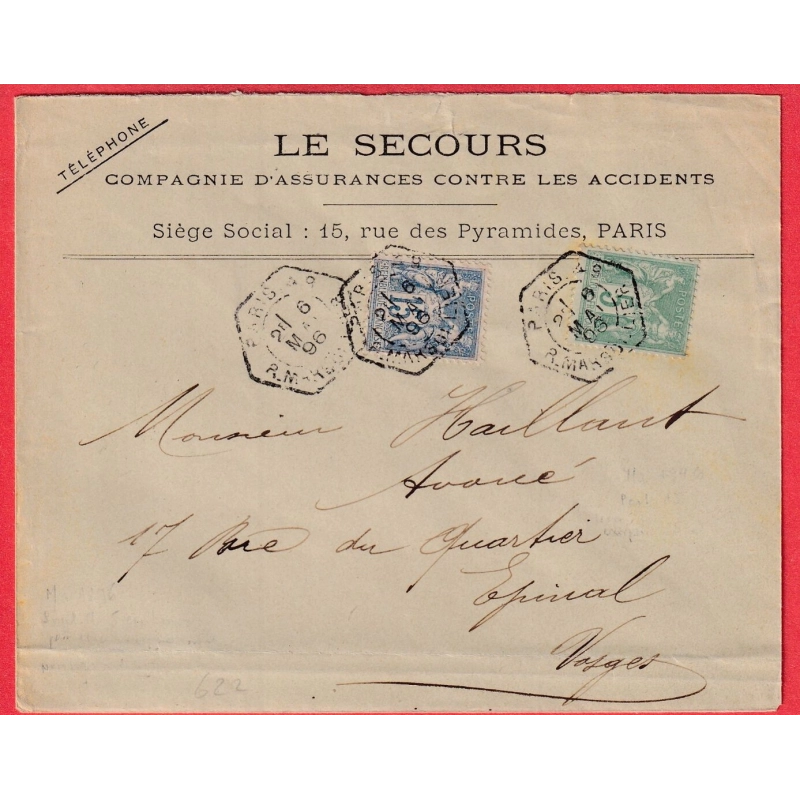 TÉLÉPHONE
LE SECOURS
COMPAGNIE D'ASSURANCES CONTRE LES ACCIDENTS
Siège Social : 15, rue des Pyramides, PARIS
PARIS
21 6
MAI
96
R. MARSOLLIER
15
PARIS
21 6
MAI
96
R. MARSOLLIER
POSTE
5
Monsieur Haillant
Avoué
17 Rue du Quartier
Epinal
Vosges
622